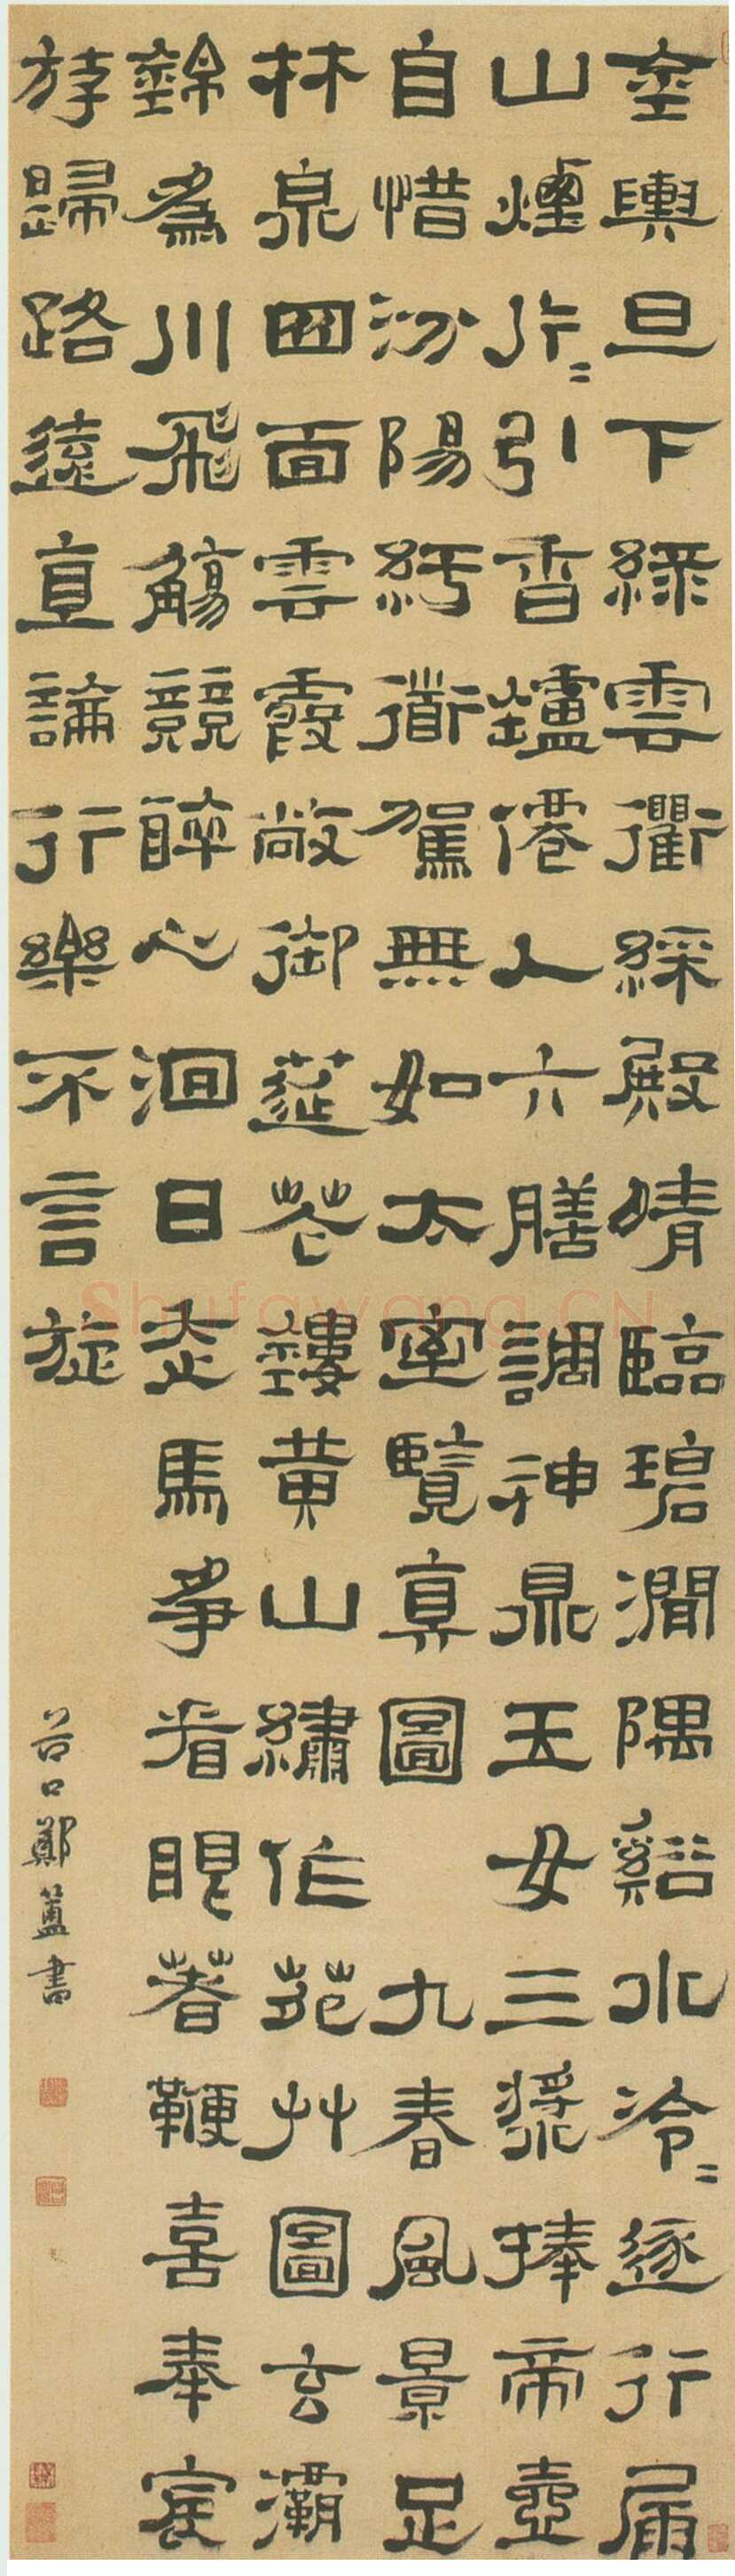 金輿旦下綠雲衢綵殿晴臨碧澗隅谿水泠〻逐行屚
山煙片〻引香鑪僊人六膳調神鼎玉女三漿捧帝壺
自惜汾陽紆衟駕無如太室覽真圖 九春風景足
林泉四面雲霞敞御莚花鏤黃山繡作苑艸圖玄灞
錦為川飛觴競醉心洄日走馬爭看眼著鞭喜奉宸
斿歸路遠直論行樂不言旋
谷口鄭簠書
Shufawang.CN